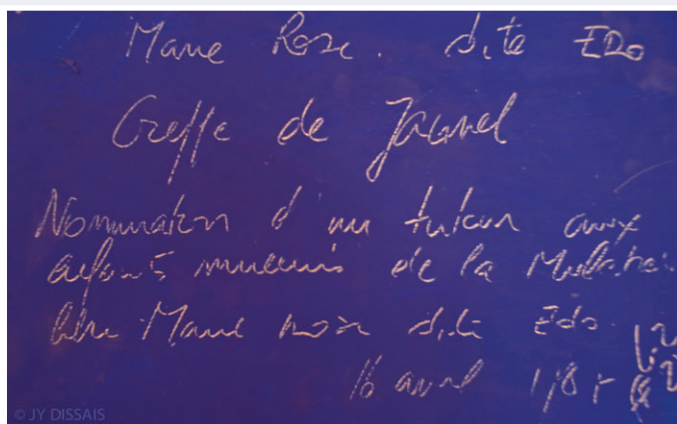 Marie Rose. dite EDo
Greffe de Jacmel
Nomination d'un tuteur aux
enfants mineurs de la Mulatre
libre Marie Rose dite Edo.
16 avril
© JY DISSAIS